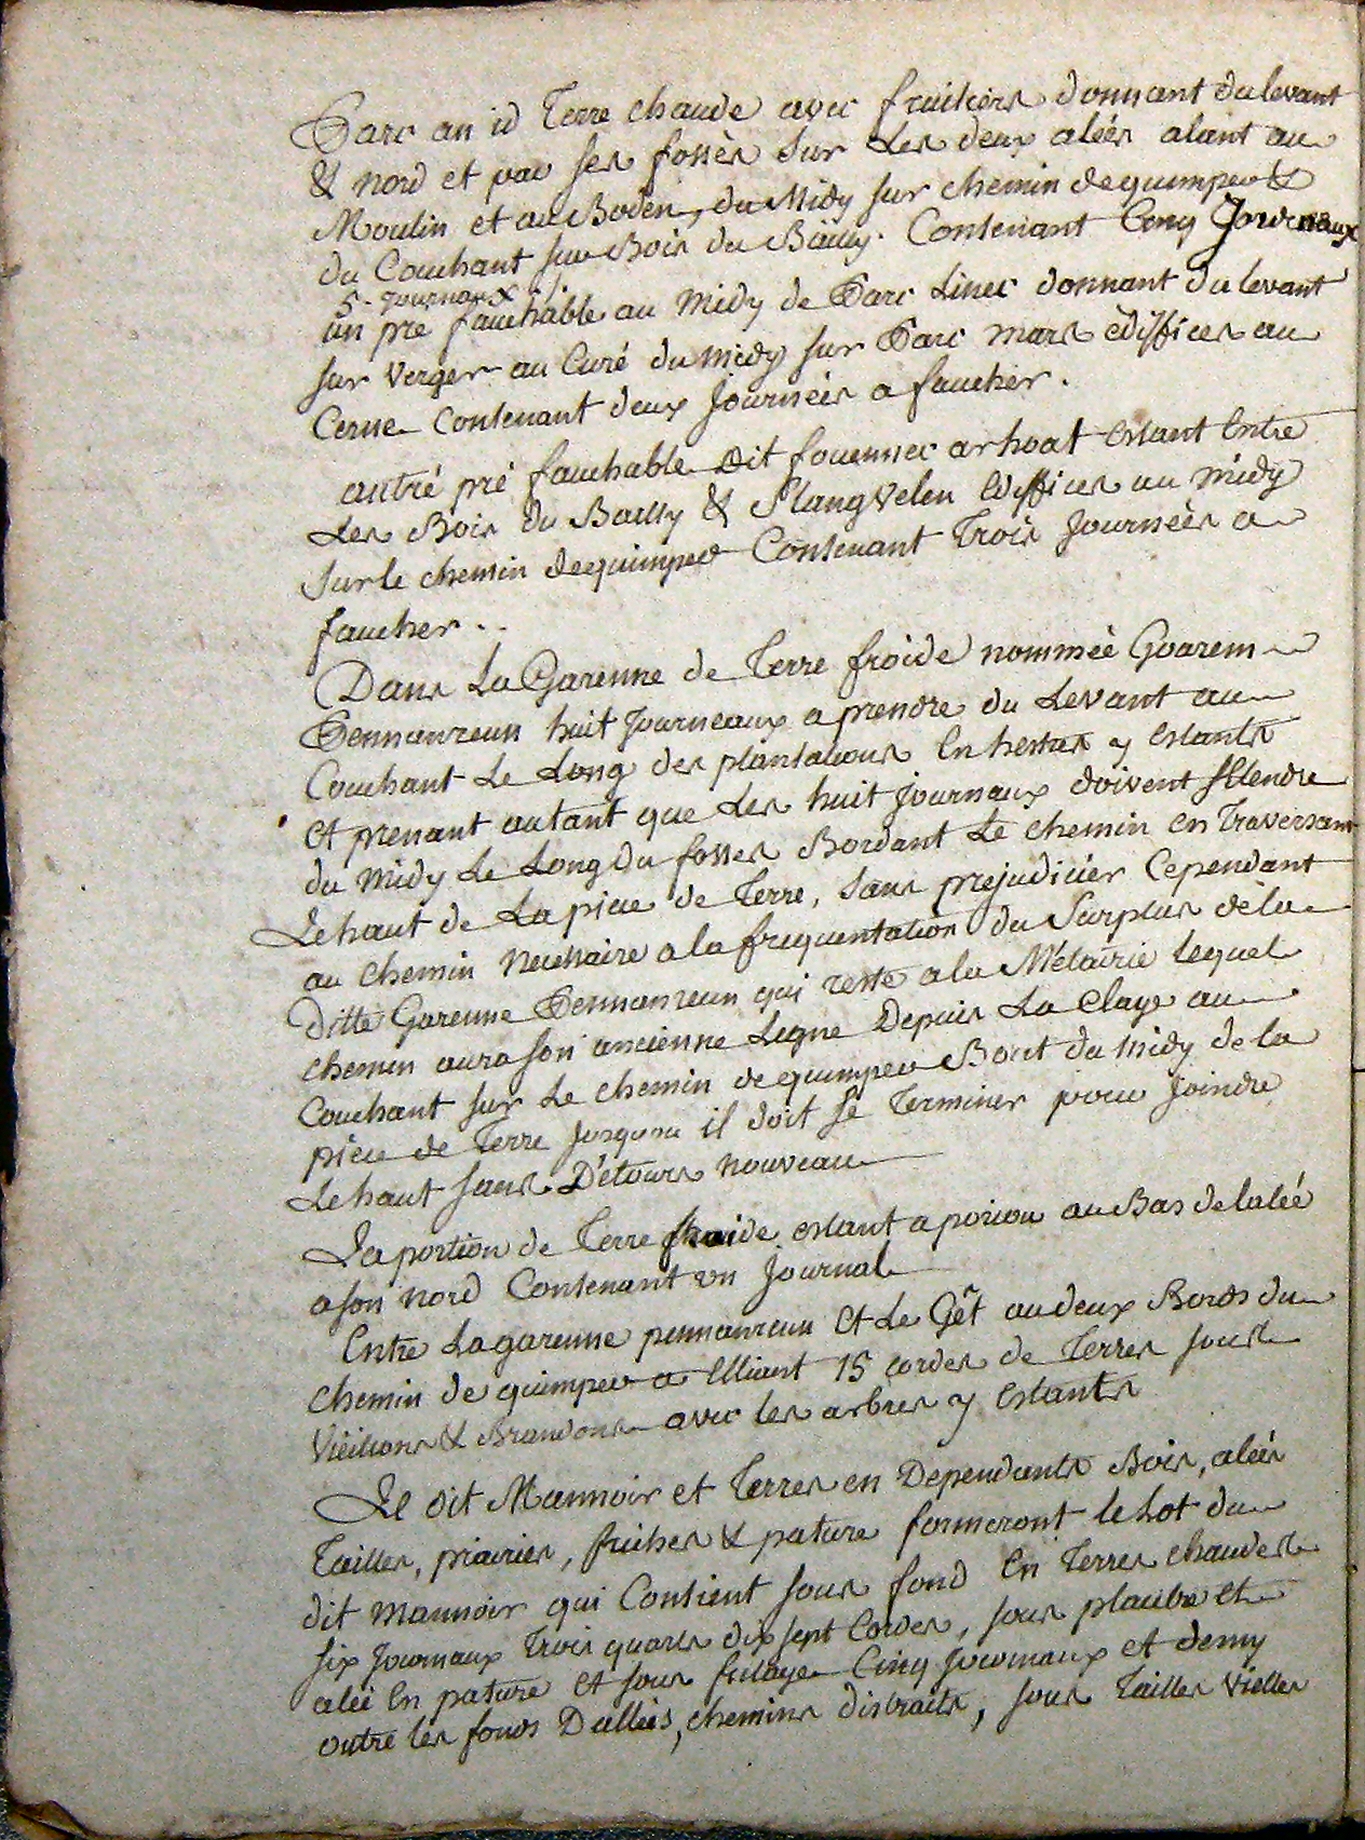 Parc an id Terre chaude avec fruitiers donnant du levant
& nord et par ses fossès sur les deux aleés alant au
Moulin et au Boden, du Midy sur chemin de quimper &
du Couchant sur Bois du Bailly. Contenant Cinq Journaux
5 - journaux
un pré fauchable au midy de Parc Linec donnant du levant
sur verger au Curé du midy sur Parc mars ediffices au
Cerne Contenant deux Journeés a faucher.
autré pré fauchable dit fouennec ar hoat estant Entre
Les Bois du Bailly & Stang Velen Ediffices au midy
sur le chemin de quimper Contenant Trois Journeès a
faucher ..
Dans La Garenne de Terre froide nommeè Goarem
Pennanreun huit Journeaux a prendre du Levant au
Couchant Le Long des plantations En hestres y estants
et prenant autant que Les huit journaux doivent s'Etendre
du midy Le Long du fosses Bordant Le chemin en Traversant
Le haut de La piece de Terre, sans prejudicier Cependant
au chemin necessaire a la frequentation du Surplus de la
ditte Garenne Pennanreun qui reste a la Métairie Lequel
chemin aura son ancienne Ligne Depuis La Claye au
Couchant sur Le chemin de quimper Bout du midy de la
piece de Terre jusqu'ou il doit se Terminer pour joindre
Le haut sans Détours nouveau
La portion de Terre froide estant a poriou au Bas de laleé
a son nord Contenant un Journal
Entre La garenne pennanreun et Le Gêt au deux Bords du
chemin de quimper a Elliant 15 cordes de Terres sous
Vieillons & Brandons avec les arbres y Estants
Le dit Mannoir et Terres en Dependants Bois, aleés
Tailles, prairies, friches & pature formeront le Lot du
dit mannoir qui Contient sous fond En Terres chaudes
six Journaux Trois quarts dix sept Cordes, sous placitre et
aleé En pature et sous frilage Cinq Journaux et demy
outre les fonds D'alleés, chemins distraits, sous Tailles Vielles